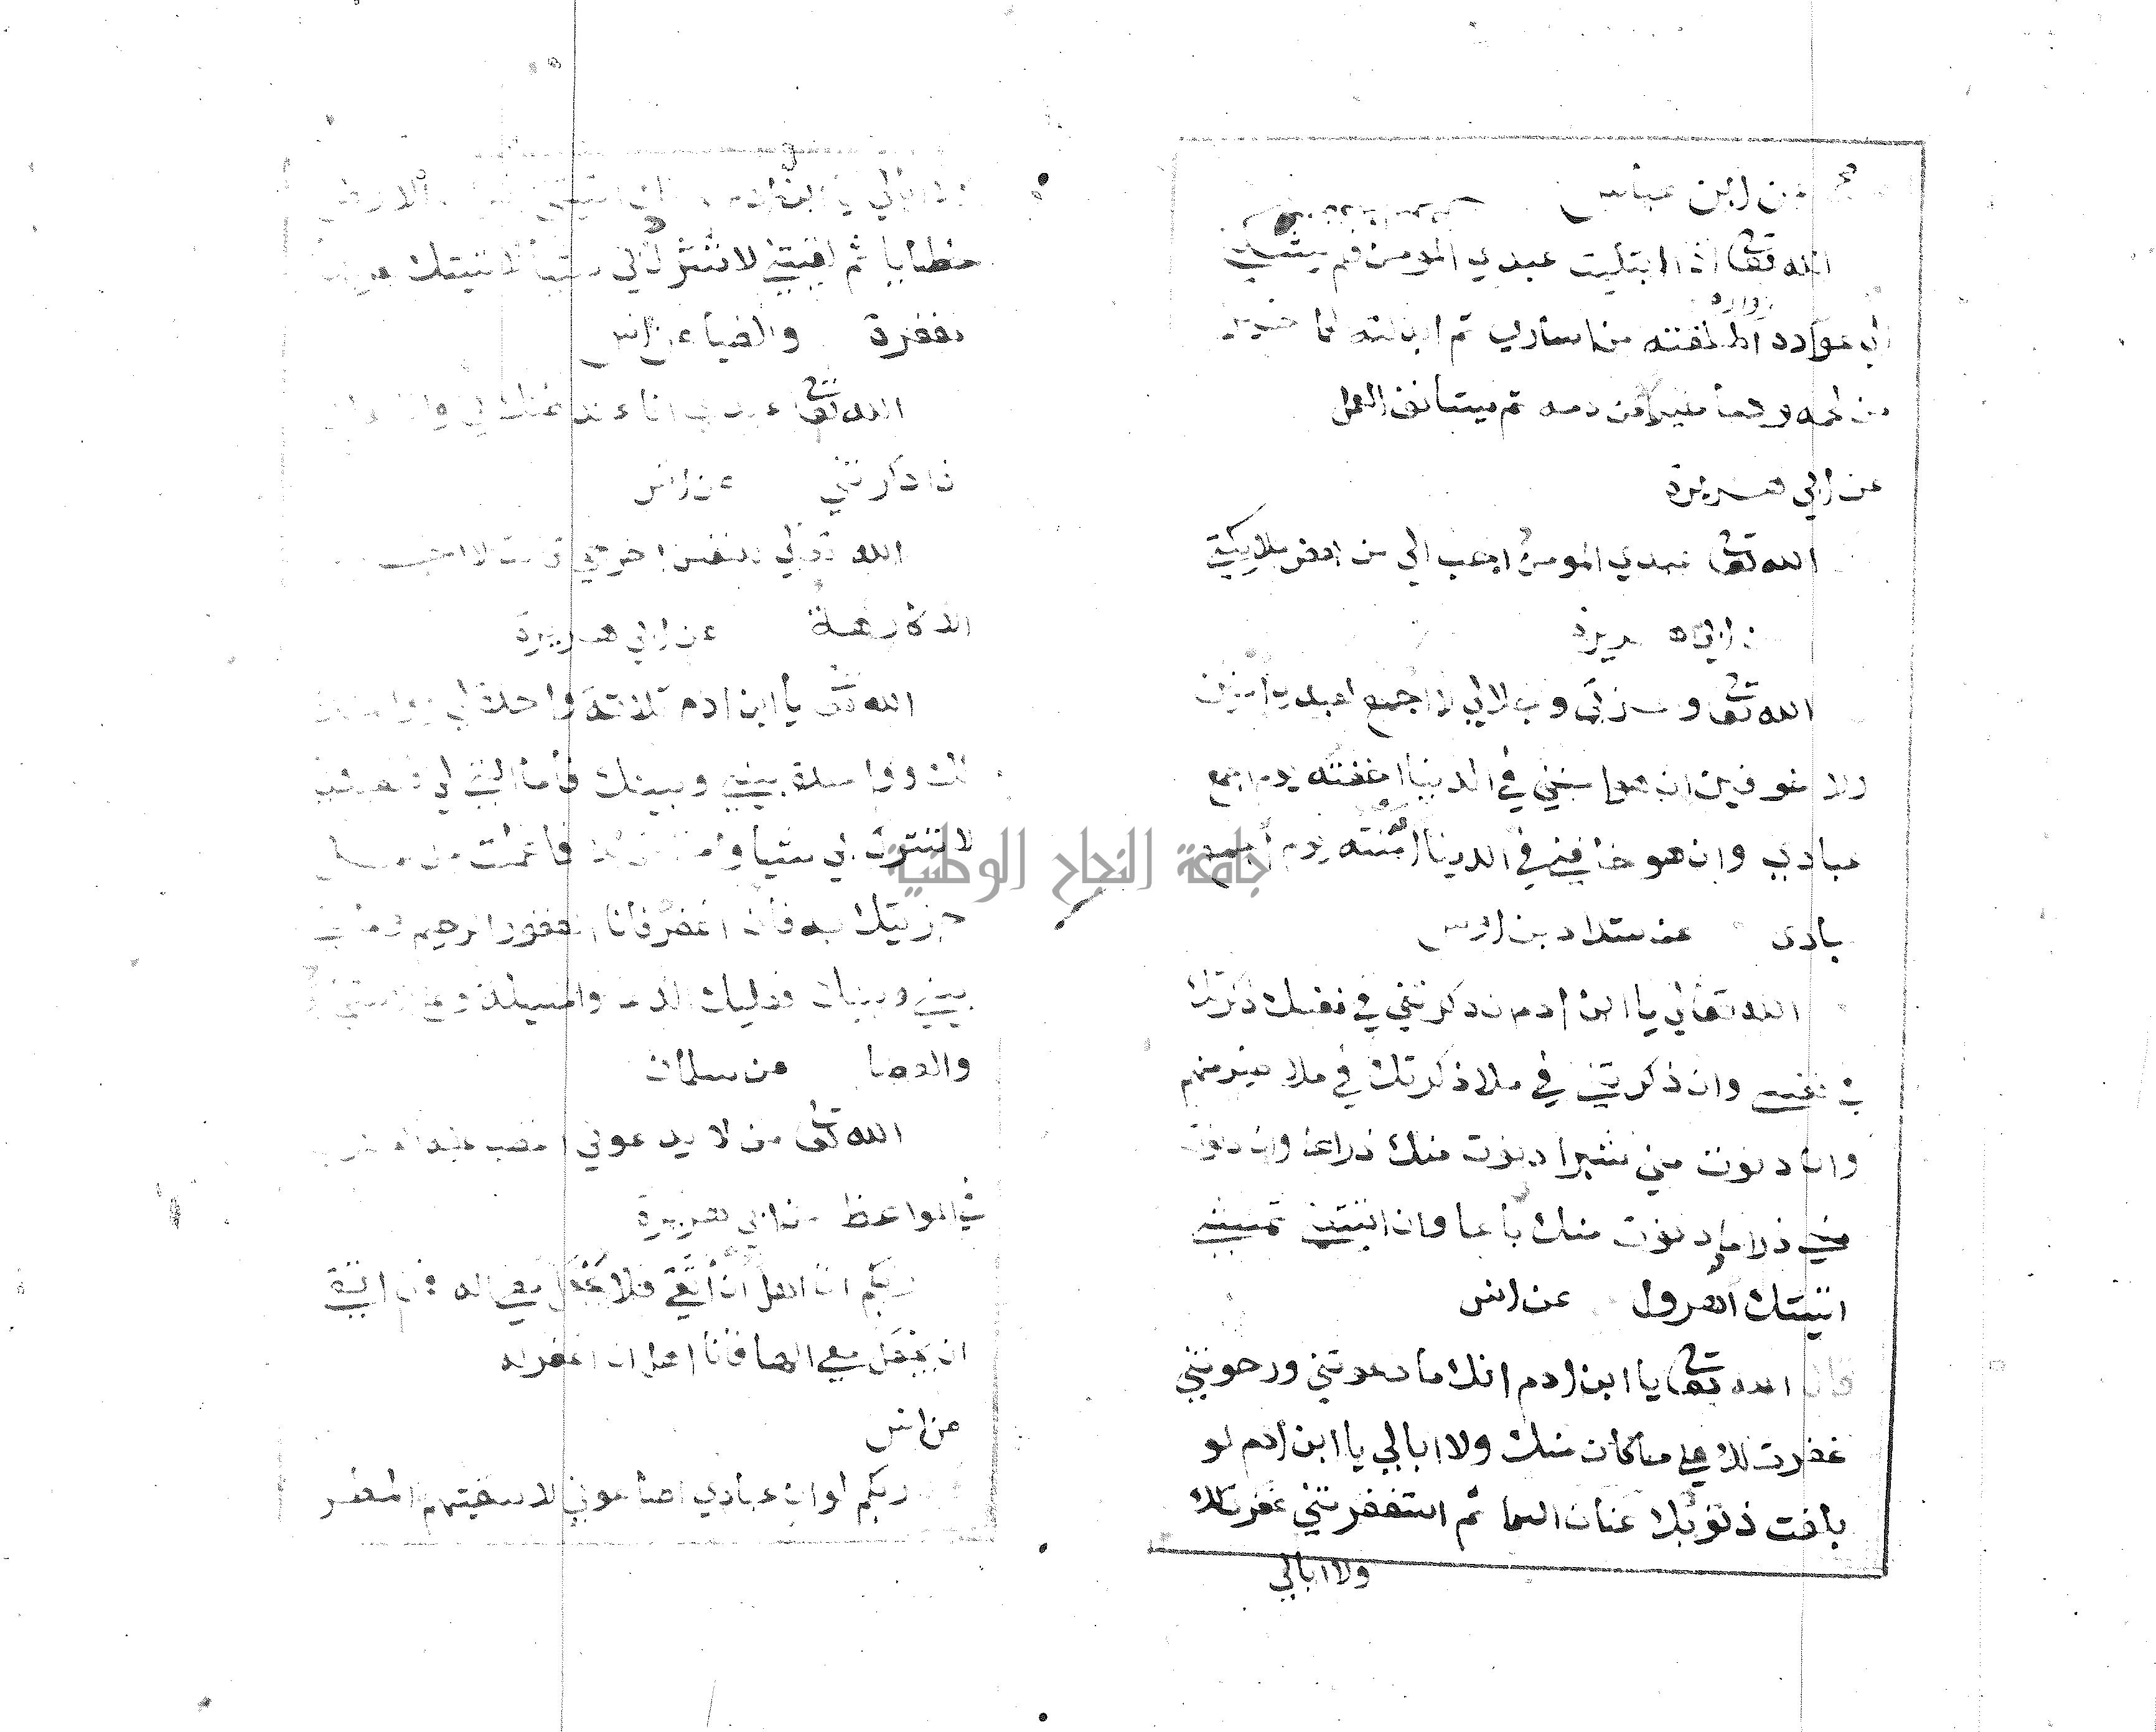 عن ابن عباس
الله تعا اذا ابتليت عبدي المومن فلم يشكني
الي عواده اطلقته من اساري ثم ابدلته لحما خيرا
من لحمه ودما خيرا من دمه ثم يستانف العمل
عن ابي هريرة
الله تعا عبدي المومن احب الي من بعض ملايكتي
عن ابي هريرة
الله تعا وعزتي وجلالي لا اجمع لعبدي امنين
ولا خوفين ان هو امنني في الدنيا اخفته يوم اجمع
عبادي وان هو خافني في الدنيا امنته يوم اجمع
بادى عن شداد بن اوس
الله تعالي يا ابن ادم ان ذكرتني في نفسك ذكرتك
في نفسي وان ذكرتني في ملا ذكرتك في ملا خير منهم
وان دنوت مني شبرا دنوت منك ذراعا وان دنوت
مني ذراعا دنوت منك باعا وان اتيتني تمشي
اتيتك اهرول عن انس
قال الله تعا يا ابن ادم انك ما دعوتني ورجوتني
غفرت لك علي ما كان منك ولا ابالي يا ابن ادم لو
بلغت ذنوبك عنان السما ثم استغفرتني غفرت لك
ولا ابالي
ولا ابالي يا ابن ادم لو ان اتيتني الارض
خطايا ثم لقيتني لا تشرك بي شيا لاتيتك
مغفرة والضيا عن انس
الله تعا عبدي انا عند ظنك بي وانا
اذا ذكرتني عن انس
الله تعالي للنفس اخرجي قالت لا اخرج
الا كارهة عن ابي هريرة
الله تعا يا ابن ادم ثلاثة واحدة لي وواحدة
لك وواحدة بيني وبينك فاما التي لي
لا تشرك بي شيا واما لك فما عملت من عمل
جزيتك به فان اغفر فانا الغفور الرحيم
بيني وبينك فعليك الدعا والمسيلة وعلي
والعطا عن سلمان
الله تعا من لا يدعوني اغضب عليه
في المواعظ عن ابي هريرة
ربكم انا اهل ان اتقي فلا يجعل معي اله فمن اتقي
ان يجعل معي الها فانا اهل ان اغفر له
عن انس
ربكم لو ان عبادي اطاعوني لاسقيتهم المطر
جامعة النجاح الوطنية